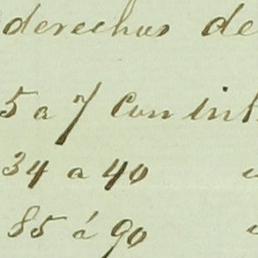 derechos de
5 a 7 Con int
34 a 40
85 á 90